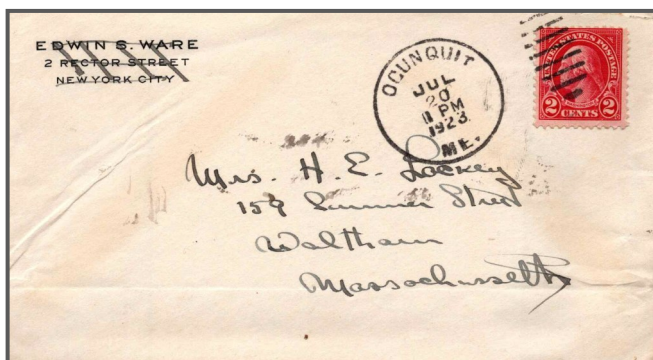 EDWIN S. WARE
2 RECTOR STREET
NEW YORK CITY
OCUNQUIT
JUL
20
11 PM
1923
ME.
UNITED STATES POSTAGE
2 CENTS 2
Mrs. H. E.
Summer Street
Waltham
Massachusetts